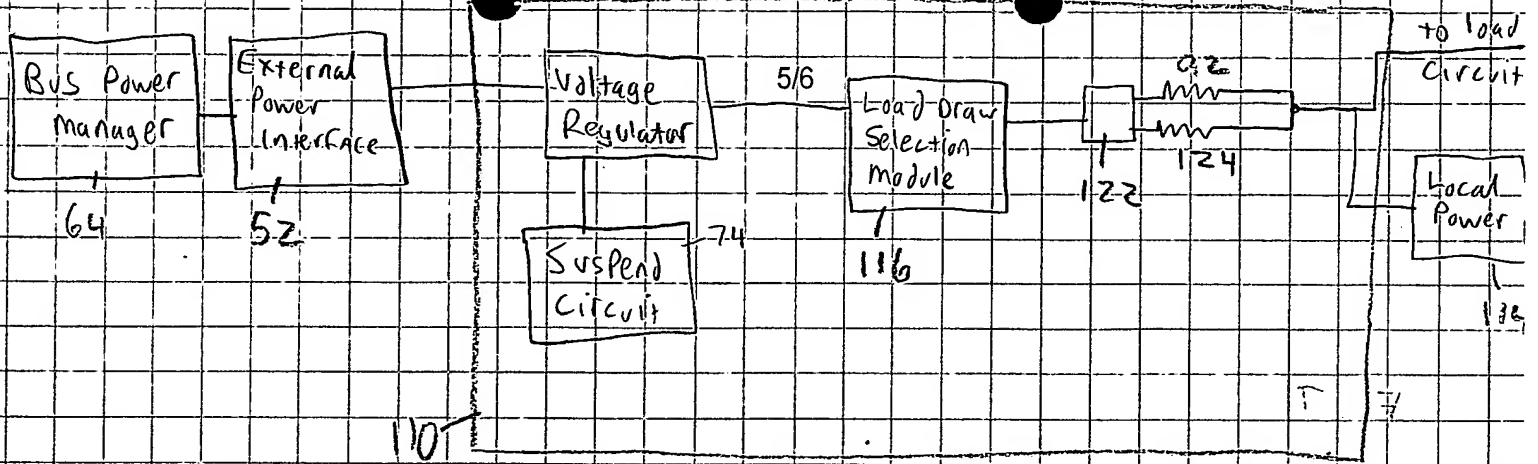 Bus Power
Manager
64
External
Power
Interface
52
Voltage
Regulator
Suspend
Circuit
74
5/6
Load Draw
Selection
Module
116
122
124
to load
Circuit
Local
Power
110